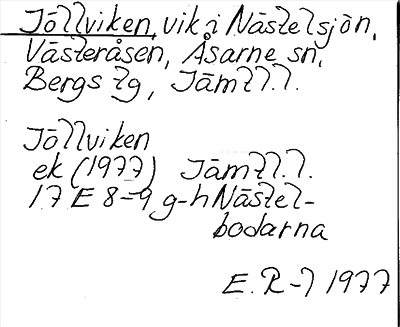 Jöllviken, vik i Nästelsjön,
Västeråsen, Åsarne sn,
Bergs tg, Jämtl.l.
Jöllviken
ek (1977) Jämtl.l.
17 E 8-9 g-h Nästel-
bodarna
E. R-l 1977